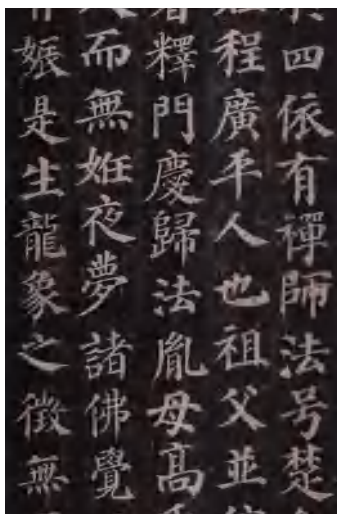 四依有禪師法号楚
程廣平人也祖父並
釋門慶歸法胤母高
而無姙夜夢諸佛覺
娠是生龍象之徵無